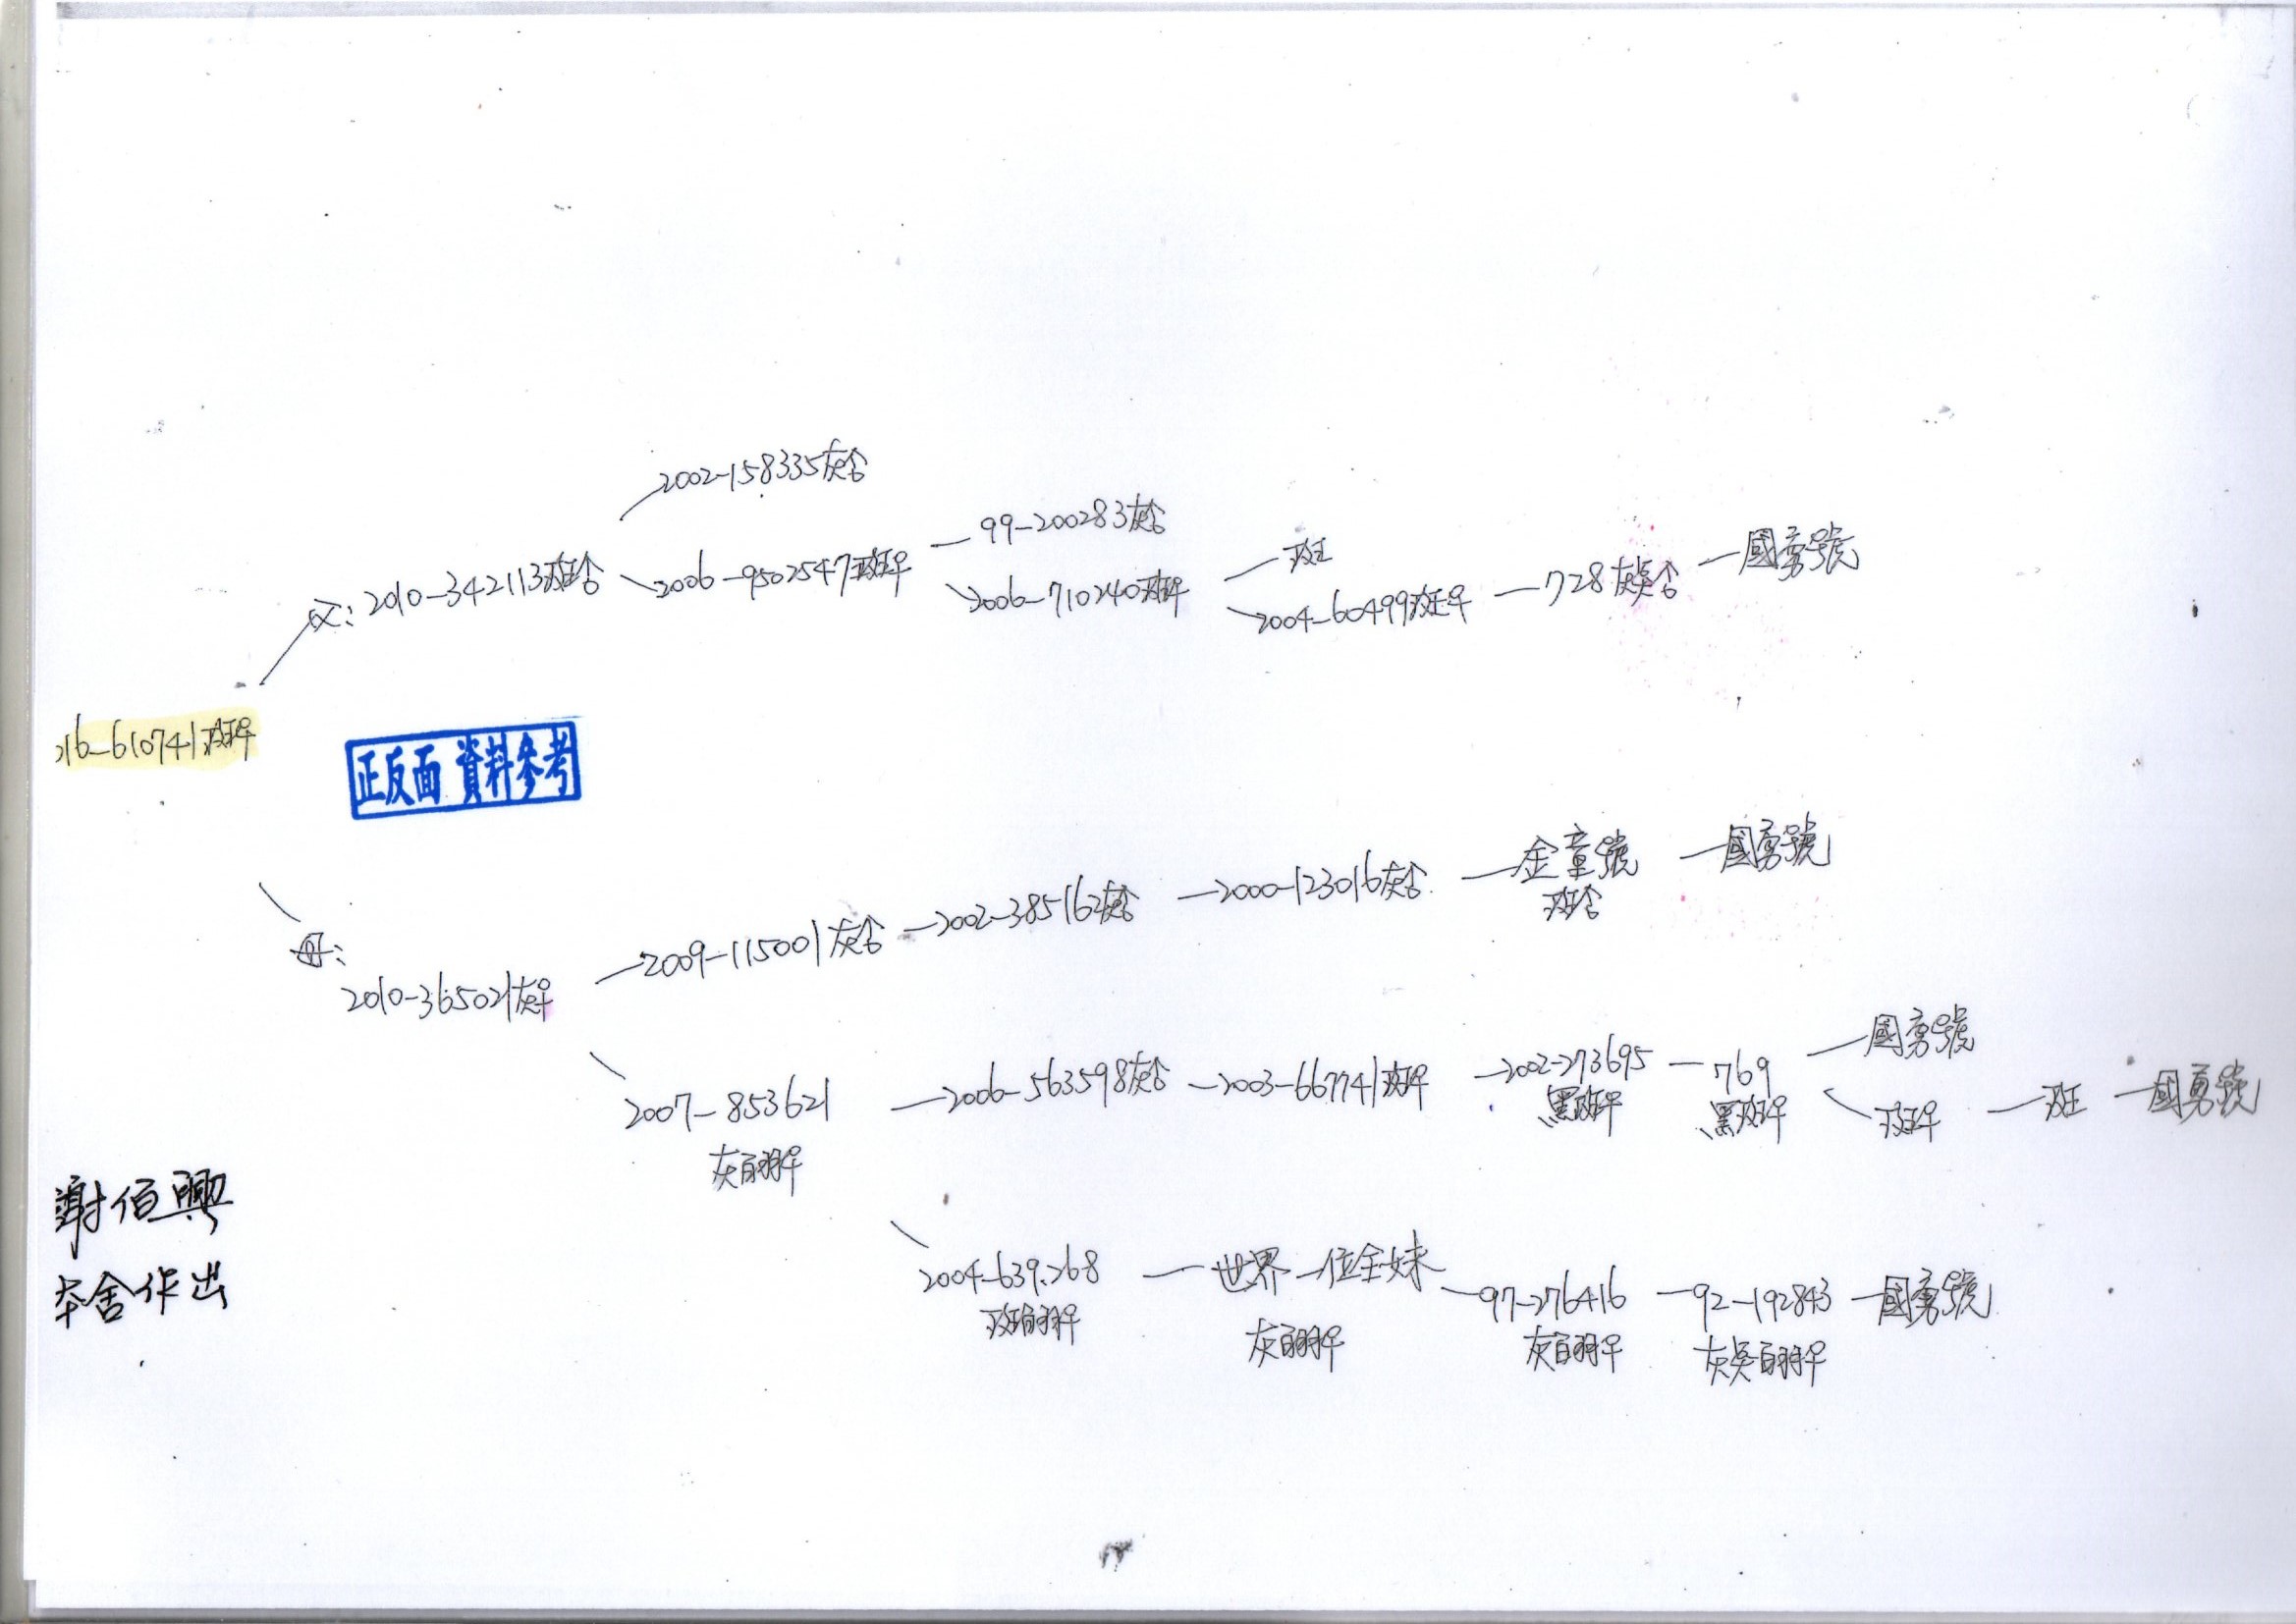 2002-158335灰合
99-200283灰合
國勇號
班
父:2010-342113斑合
2006-9502547斑平
2006-710240斑平
2004-60499斑平
728灰吳合
16-610741斑平
正反面 資料參考
金童號
斑合
國勇號
2000-123016灰合
2002-385162灰合
2009-115001灰合
母:
2010-365021灰平
國勇號
2007-853621
灰白羽平
2006-563598灰合
2003-667741斑平
2002-273695
黑斑平
769
黑斑平
斑平
斑
國勇號
謝佰興
本舍作出
2004-639268
斑白羽平
世界一位全妹
灰白羽平
97-276416
灰白羽平
92-192843
灰吳白羽平
國勇號